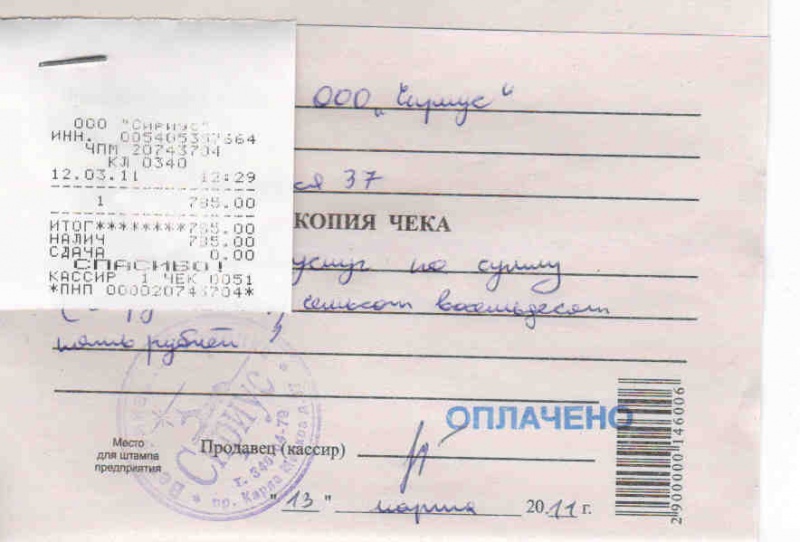 ООО "Сириус"
ИНН. 005405357664
ЧПМ 20743704
КЛ 0340
12.03.11 12:29
1 785.00
ИТОГ********785.00
НАЛИЧ 785.00
СДАЧА 0.00
СПАСИБО!
КАССИР 1 ЧЕК 0051
*ПНП 000020743704*
ООО „Сириус"
37
КОПИЯ ЧЕКА
услуг на сумму
семьсот восемьдесят
пять рублей
Сириус
пр. Карла Маркса
ОПЛАЧЕНО
Место
для штампа
предприятия
Продавец (кассир)
"13" марта 2011 г.
2900000146006